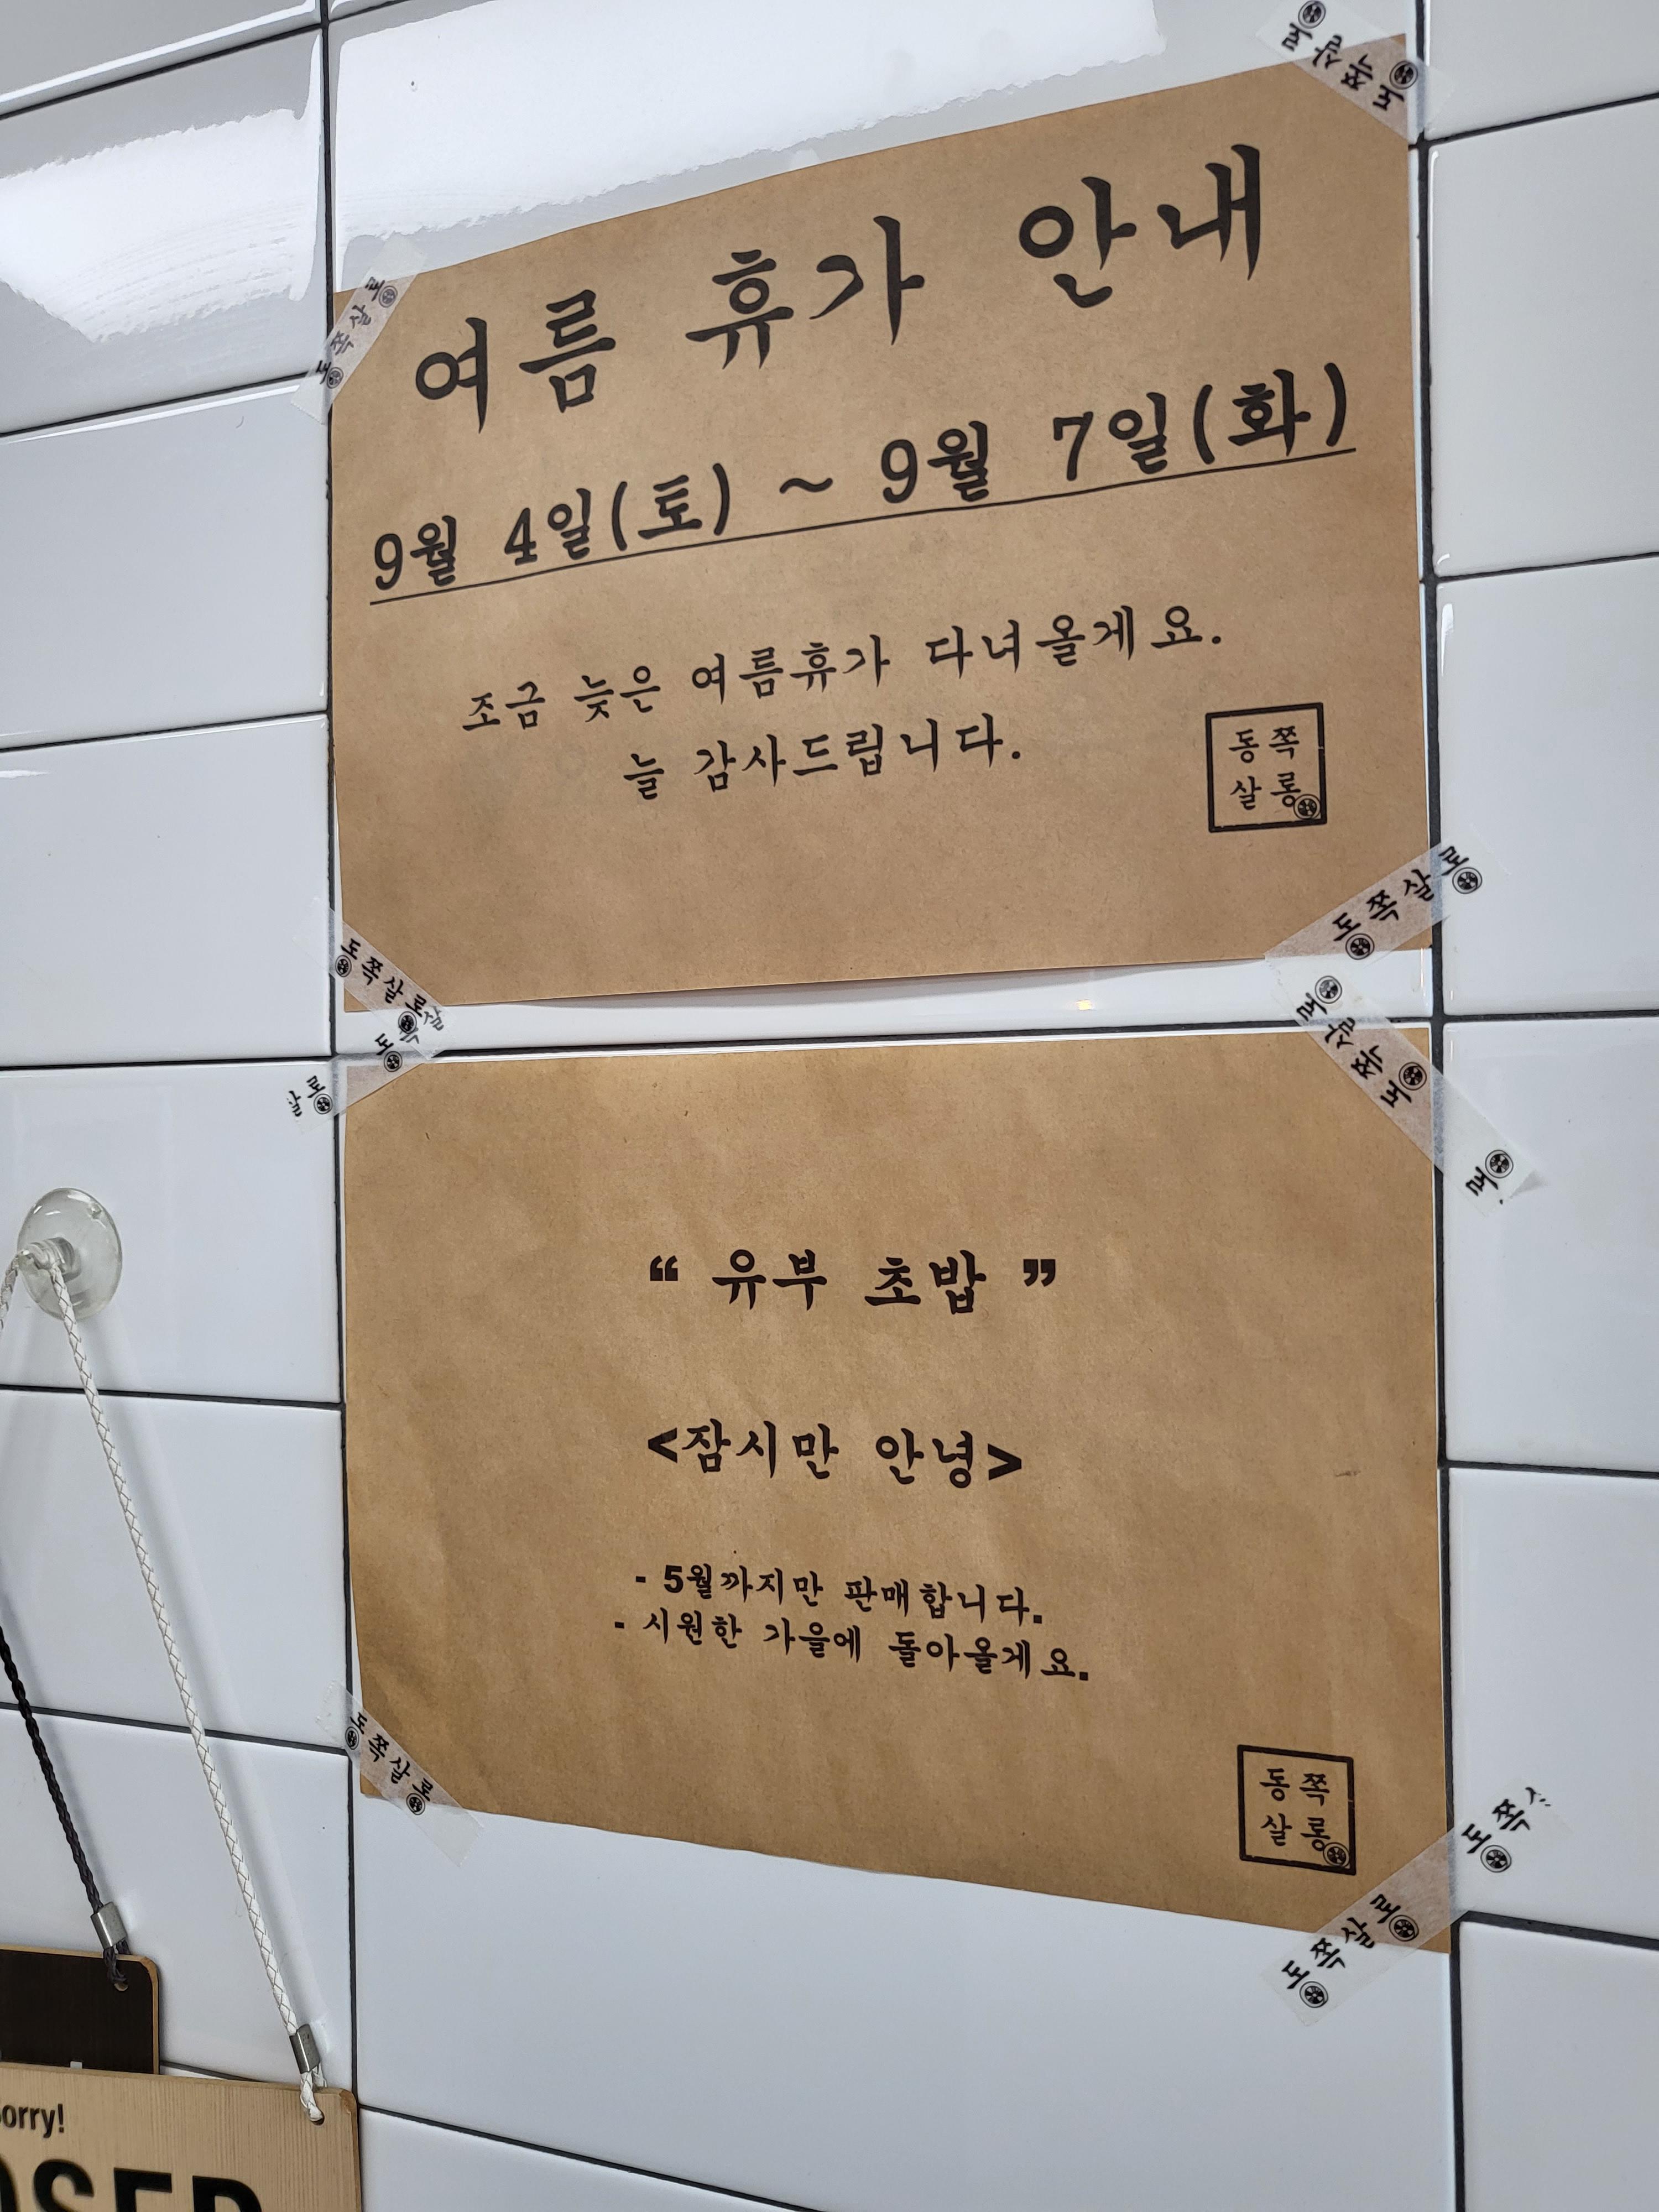 여름 휴가 안내
9월 4일(토) ~ 9월 7일(화)
조금 늦은 여름휴가 다녀올게요.
늘 감사드립니다.
동쪽
살롱
동쪽살롱
동쪽살롱
동쪽살롱
동쪽살롱
“ 유부 초밥 ”
<잠시만 안녕>
- 5월까지만 판매합니다.
- 시원한 가을에 돌아올게요.
동쪽
살롱
동쪽살롱
동쪽살롱
동쪽살롱
동쪽